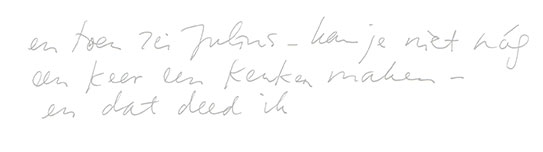 en toen zei Julius – kan je niet nóg
een keer een keuken maken –
en dat deed ik